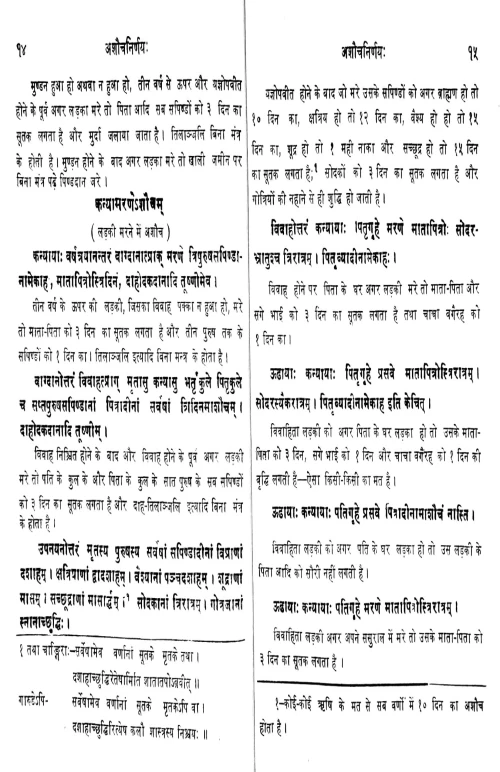 १४
अशौचनिर्णयः
मुण्डन हुआ हो अथवा न हुआ हो, तीन वर्ष से ऊपर और यज्ञोपवीत
होने के पूर्व अगर लड़का मरे तो पिता आदि सब सपिण्डों को ३ दिन का
सूतक लगता है और मुर्दा जलाया जाता है। तिलाञ्जलि बिना मंत्र
के होती है। मुण्डन होने के बाद अगर लड़का मरे तो खाली जमीन पर
बिना मंत्र पढ़े पिण्डदान करे।
कन्यामरणेऽशौचम्
( लड़की मरने में अशौच )
कन्यायाः वर्षत्रयानन्तरं वाग्दानात्प्राक् मरणे त्रिपुरुषसपिण्डा-
नामेकाहं, मातापित्रोस्त्रिदिनं, दाहोदकदानादि तूष्णीमेव।
तीन वर्ष के ऊपर की लड़की, जिसका विवाह पक्का न हुआ हो, मरे
तो माता-पिता को ३ दिन का सूतक लगता है और तीन पुरुष तक के
सपिण्डों को १ दिन का। तिलाञ्जलि इत्यादि बिना मन्त्र के होता है।
वाग्दानोत्तरं विवाहात्प्राग् मृतासु कन्यासु भर्तृकुले पितृकुले
च सप्तपुरुषसपिण्डानां पित्रादीनां सर्वेषां त्रिदिनमाशौचम्।
दाहोदकदानादि तूष्णीम्।
विवाह निश्चित होने के बाद और विवाह होने के पूर्व अगर लड़की
मरे तो पति के कुल के और पिता के कुल के सात पुरुष के सब सपिण्डों
को ३ दिन का सूतक लगता है और दाह-तिलाञ्जलि इत्यादि बिना मंत्र
के होता है।
उपनयनोत्तरं मृतस्य पुरुषस्य सर्वेषां सपिण्डादीनां विप्राणां
दशाहम्। क्षत्रियाणां द्वादशाहम्। वेश्यानां पञ्चदशाहम्। शूद्राणां
मासम्। सच्छूद्राणां मासार्द्धम्।¹ सोदकानां त्रिरात्रम्। गोत्रजानां
स्नानाच्छुद्धिः।
१ तथा चाङ्गिराः—सर्वेषामेव वर्णानां सूतके मृतके तथा।
दशाहाच्छुद्धिरेतेषामिति शातातपोऽब्रवीत्॥
गारुडेऽपि- सर्वेषामेव वर्णानां सूतके मृतकेऽपि वा।
दशाहाच्छुद्धिरित्येष कलौ शास्त्रस्य निश्चयः॥
अशौचनिर्णयः
१५
यज्ञोपवीत होने के बाद जो मरे उसके सपिण्डों को अगर ब्राह्मण हो तो
१० दिन का, क्षत्रिय हो तो १२ दिन का, वैश्य हो हो तो १५
दिन का, शूद्र हो तो १ महीनाका और सच्छूद्र हो तो १५ दिन
का सूतक लगता है;¹ सोदकों को ३ दिन का सूतक लगता है और
गोत्रियों की नहाने से ही शुद्धि हो जाती है।
विवाहोत्तरं कन्यायाः पितृगृहे मरणे मातापित्रोः सोदर-
भ्रातुश्च त्रिरात्रम्। पितृव्यादीनामेकाहः।
विवाह होने पर पिता के घर अगर लड़की मरे तो माता-पिता और
सगे भाई को ३ दिन का सूतक लगता है तथा चाचा वगैरह को
१ दिन का।
ऊढायाः कन्यायाः पितृगृहे प्रसवे मातापित्रोस्त्रिरात्रम्।
सोदरस्यैकरात्रम्। पितृव्यादीनामेकाह इति केचित्।
विवाहिता लड़की को अगर पिता के घर लड़का हो तो उसके माता-
पिता को ३ दिन, सगे भाई को १ दिन और चाचा वगैरह को १ दिन की
वृद्धि लगती है—ऐसा किसी-किसी का मत है।
ऊढायाः कन्यायाः पतिगृहे प्रसवे पित्रादीनामाशौचं नास्ति।
विवाहिता लड़की को अगर पति के घर लड़का हो तो उस लड़की के
पिता आदि को सौरी नहीं लगती है।
ऊढायाः कन्यायाः पतिगृहे मरणे मातापित्रोस्त्रिरात्रम्।
विवाहिता लड़की अगर अपने ससुराल में मरे तो उसके माता-पिता को
३ दिन का सूतक लगता है।
१—कोई-कोई ऋषि के मत से सब वर्णों में १० दिन का अशौच
होता है।